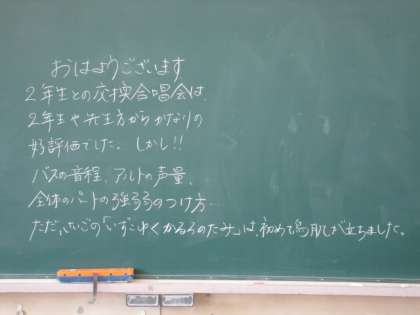 おはようございます
2年生との交換合唱会は、
2年生や先生方からかなりの
好評価でした。しかし!!
バスの音程、アルトの声量、
全体のパートの強弱のつけ方…
ただ、さいごの「いざゆくかるろのたみ」は、初めて鳥肌が立ちました。